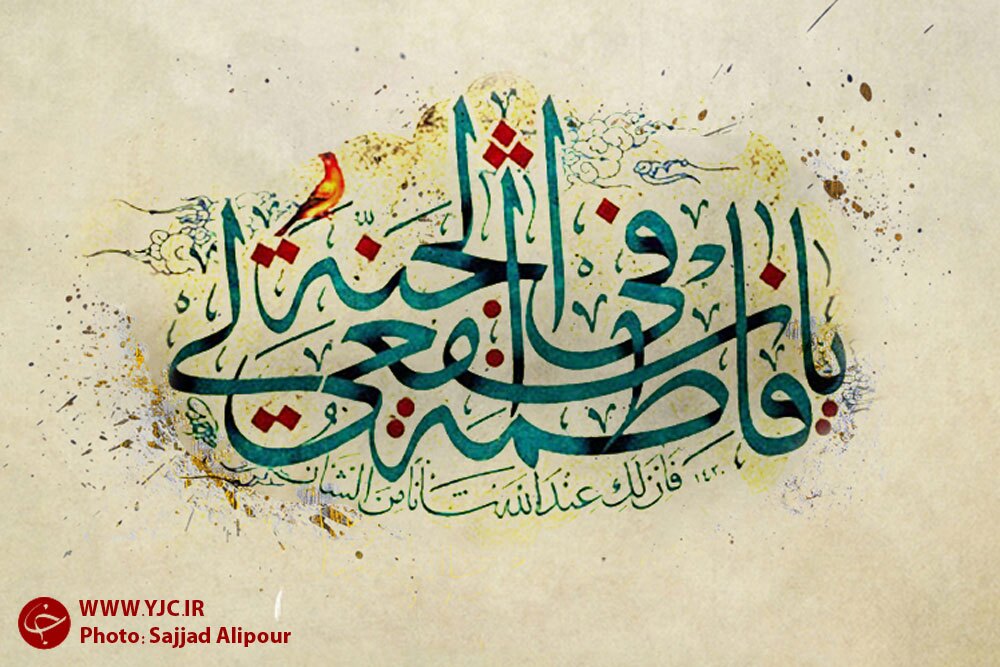 یا فاطمة اشفعی لی فی الجنة
فان لك عند الله شانا من الشان
۱۴۳۰
WWW.YJC.IR
Photo: Sajjad Alipour